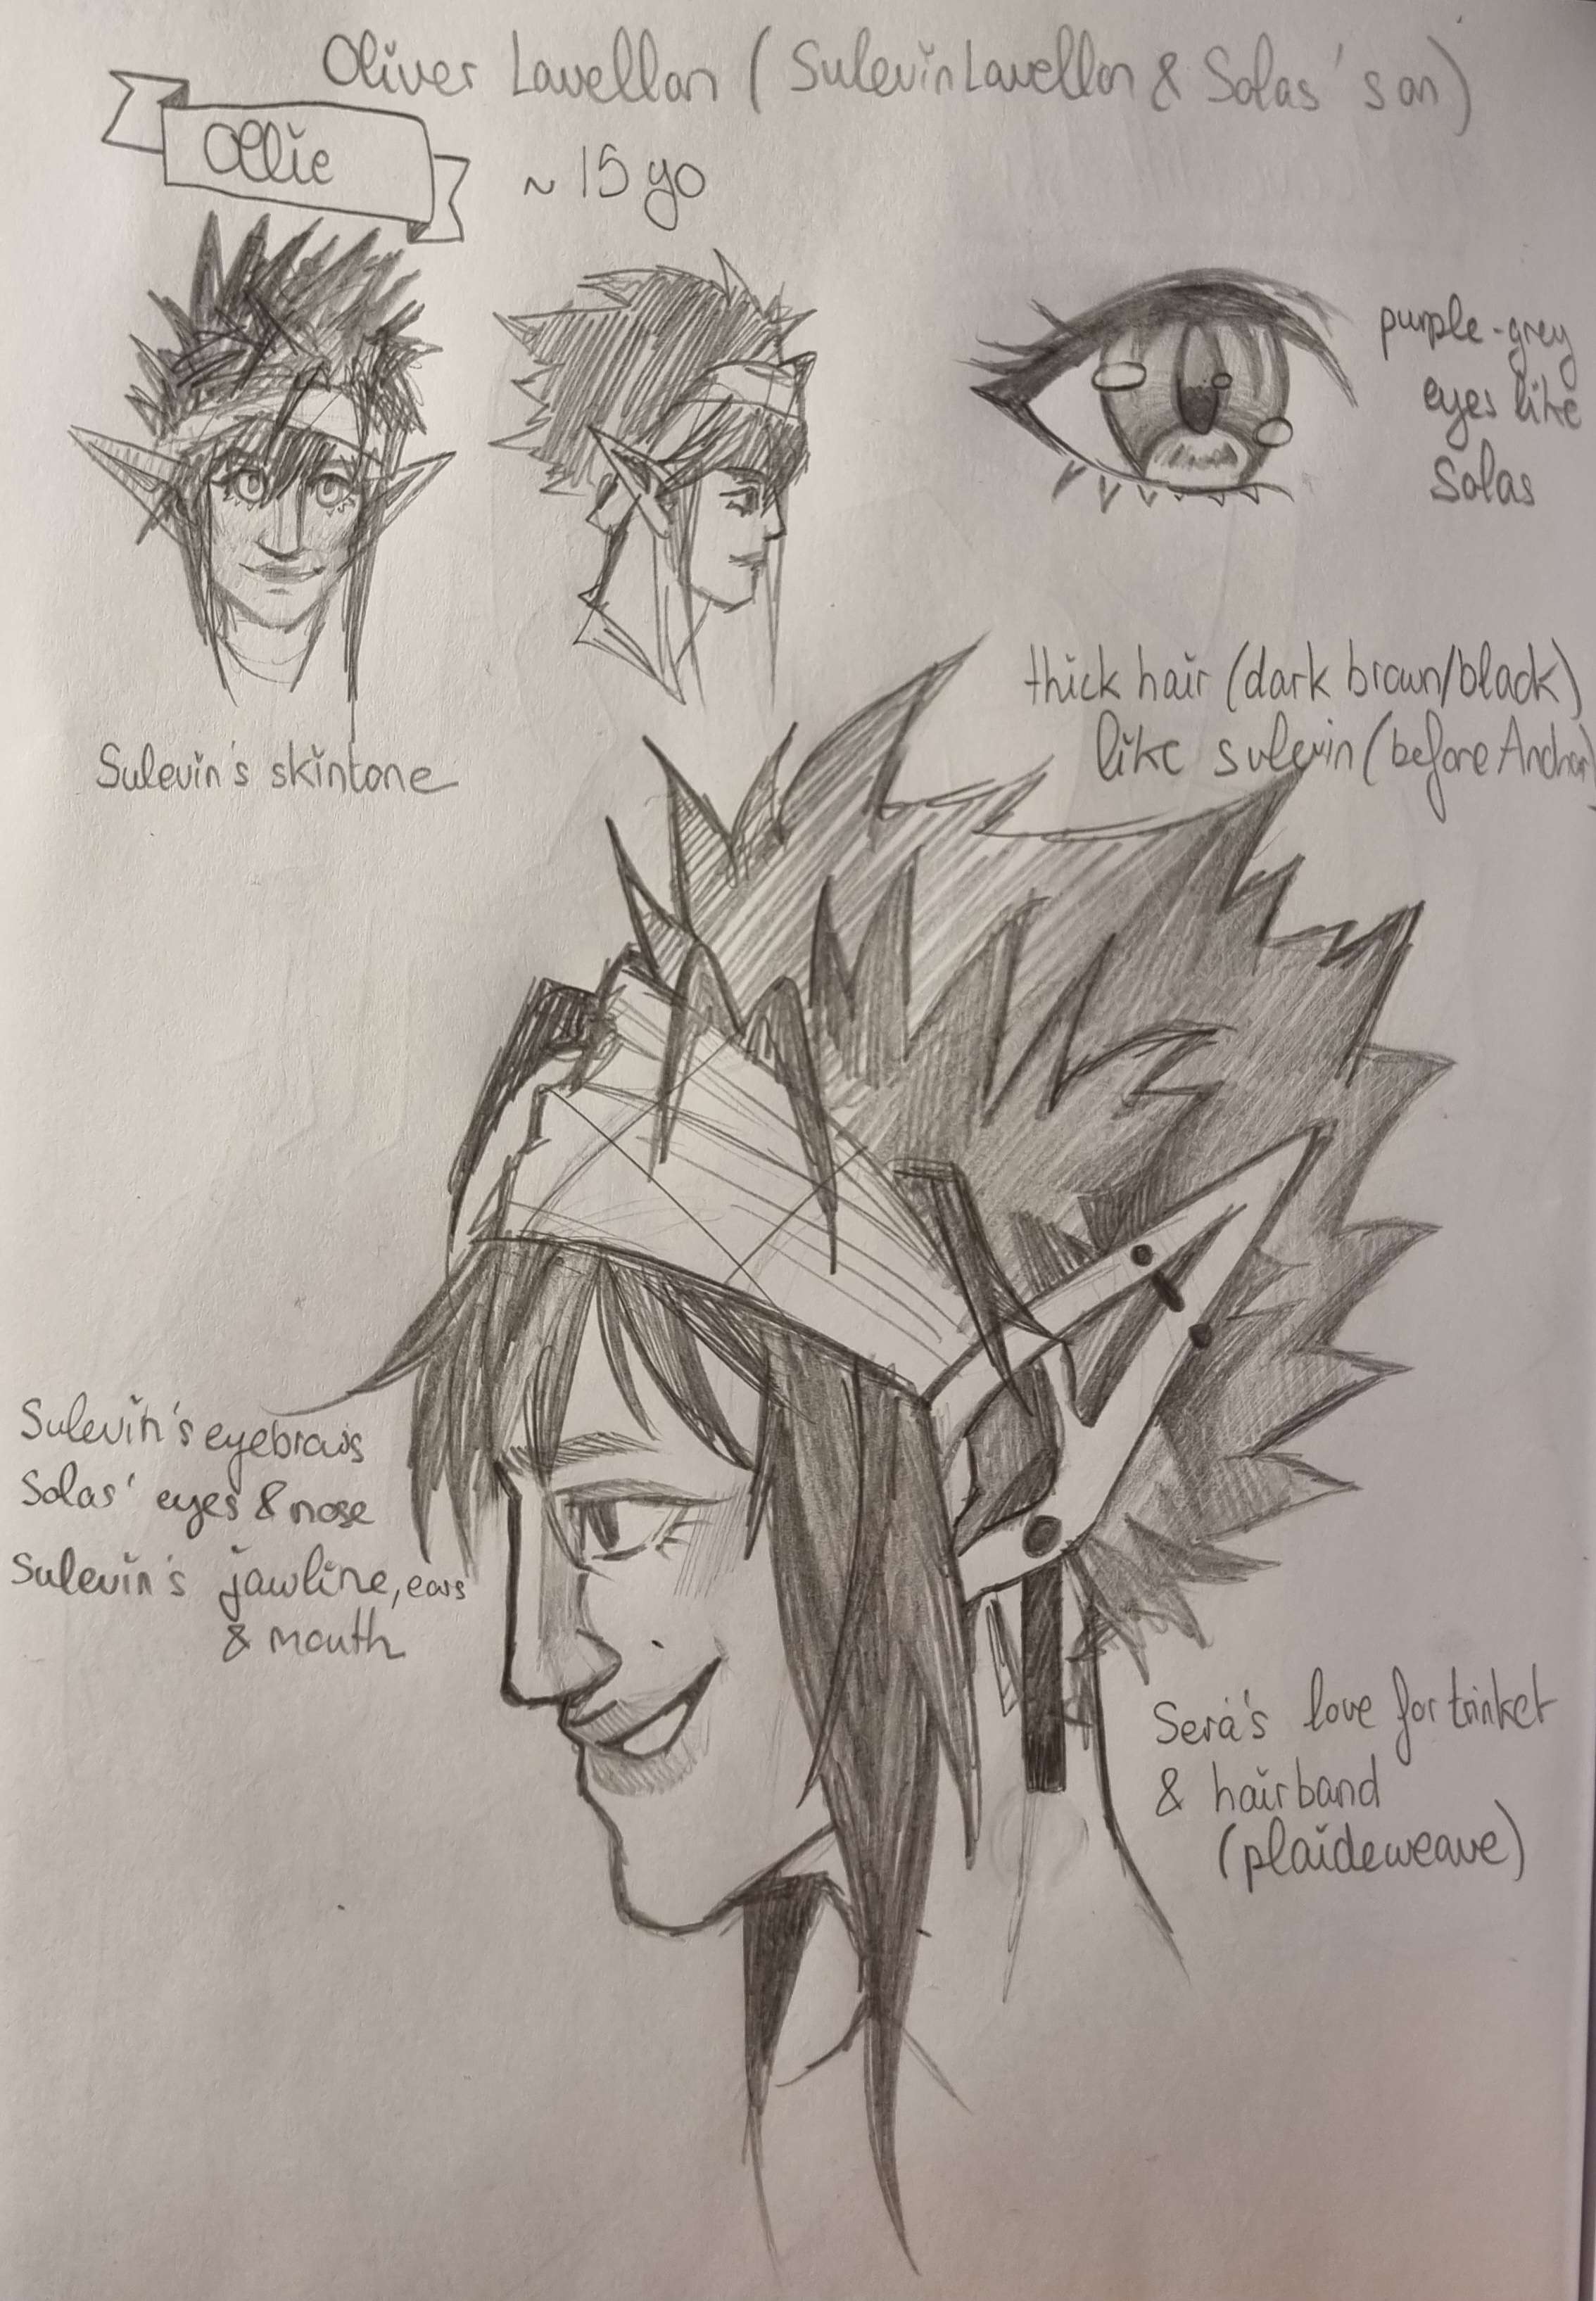 Oliver Lavellan (Sulevin Lavellan & Solas' son)
Ollie
~ 15 yo
purple-grey
eyes like
Solas
thick hair (dark brown/black)
like sulevin (before Anchor)
Sulevin's skintone
Sulevin's eyebrows
Solas' eyes & nose
Sulevin's jawline, ears
& mouth
Sera's love for trinket
& hairband
(plaideweave)